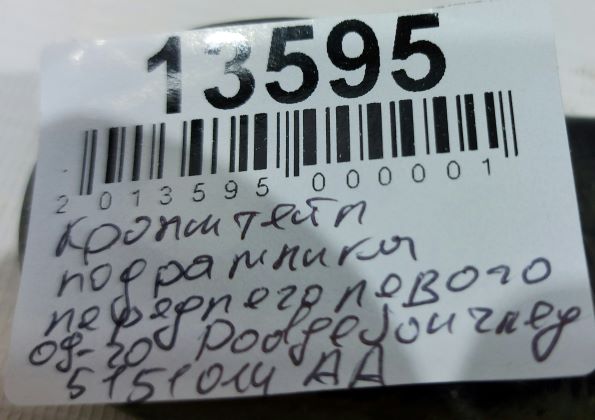 13595
2 013595 000001
кронштейн
подрамника
переднего левого
09-20 Dodge Journey
5151014 AA